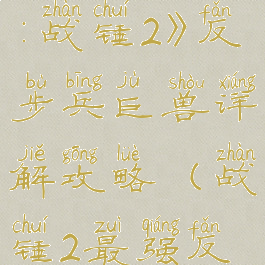 zhàn chuí fǎn
：战锤2》反
bù bīng jù shòu xiáng
步兵巨兽详
jiě gōng lüè zhàn
解攻略（战
chuí zuì qiáng fǎn
锤2最强反